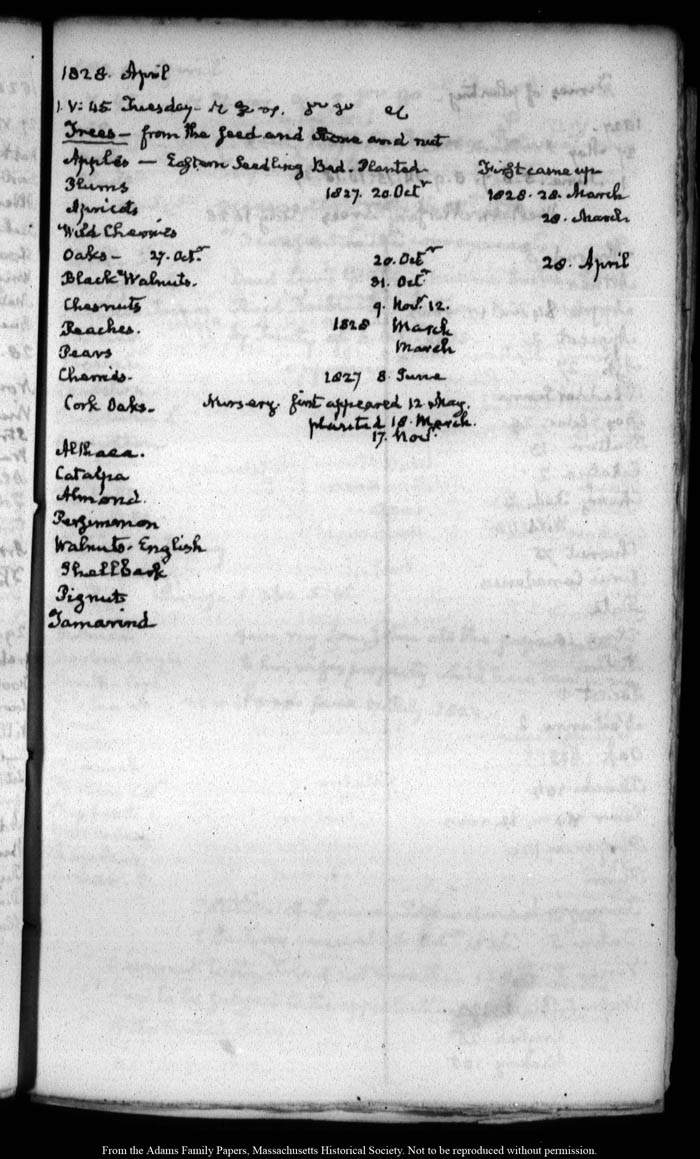 1828. April
1. V: 45 Tuesday.
Trees — from the seed and stone and nut
Apples — Eastern Seedling Bed. Planted First came up
Plums 1827. 20. Octr 1828. 28. March
Apricots 28. March
Wild Cherries
Oaks — 27. Octr. 20. Octr 28. April
Black Walnuts. 31. Octr.
Chesnuts 9. Novr. 12.
Peaches. 1828 March
Pears March
Cherries. 1827 8. June
Cork Oaks. Nursery. first appeared 12. May.
planted 18. March.
17. Novr.
Althaea.
Catalpa
Almond.
Persimmon
Walnuts. English
Shellbark
Pignuts
Tamarind
From the Adams Family Papers, Massachusetts Historical Society. Not to be reproduced without permission.